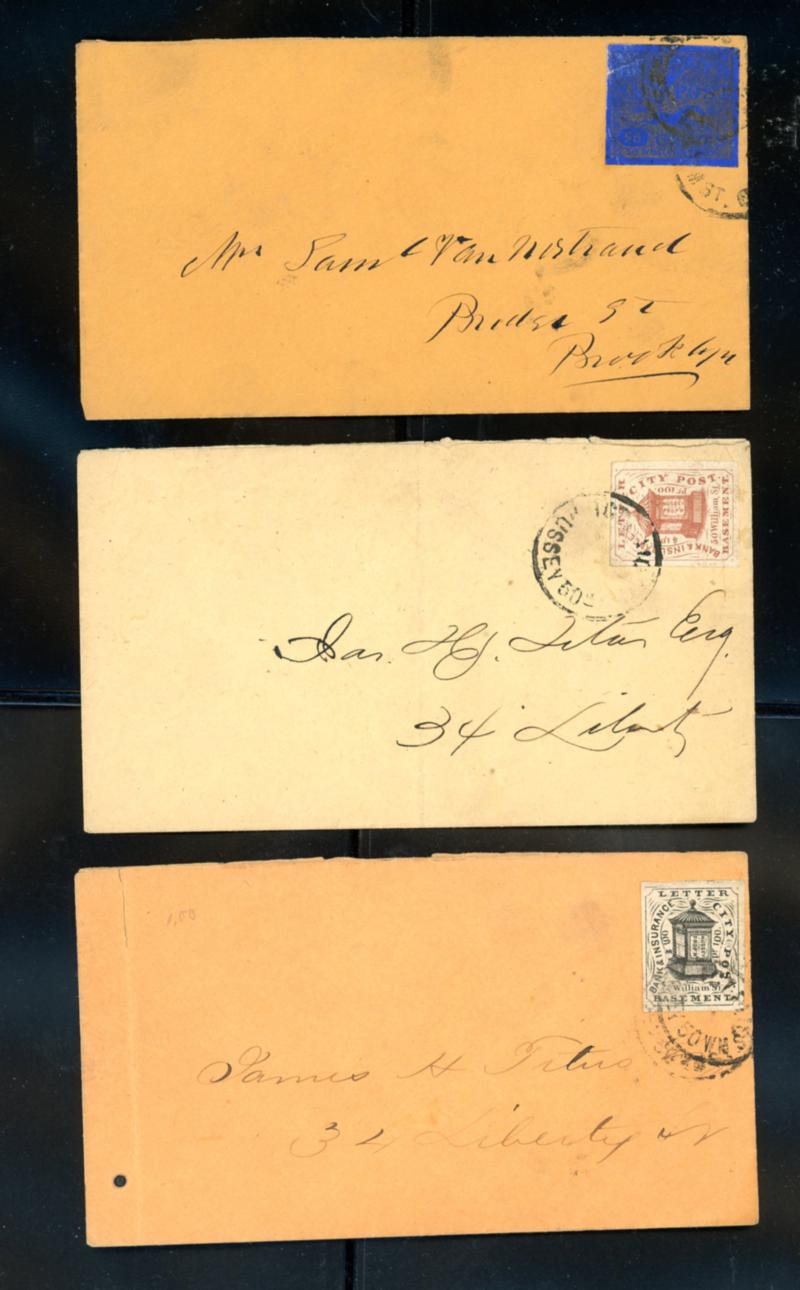 ST.
Mr Saml Van Nostrand
Bridge St
Brooklyn
LETTER CITY POST
BANK & INSURANCE
50 William St.
BASEMENT.
HUSSEY 50
Jas. H. Titus Esq.
34 Liberty
1,00
LETTER
BANK & INSURANCE CITY POST
William St
BASEMENT.
50 WM
James H Titus
34 Liberty St